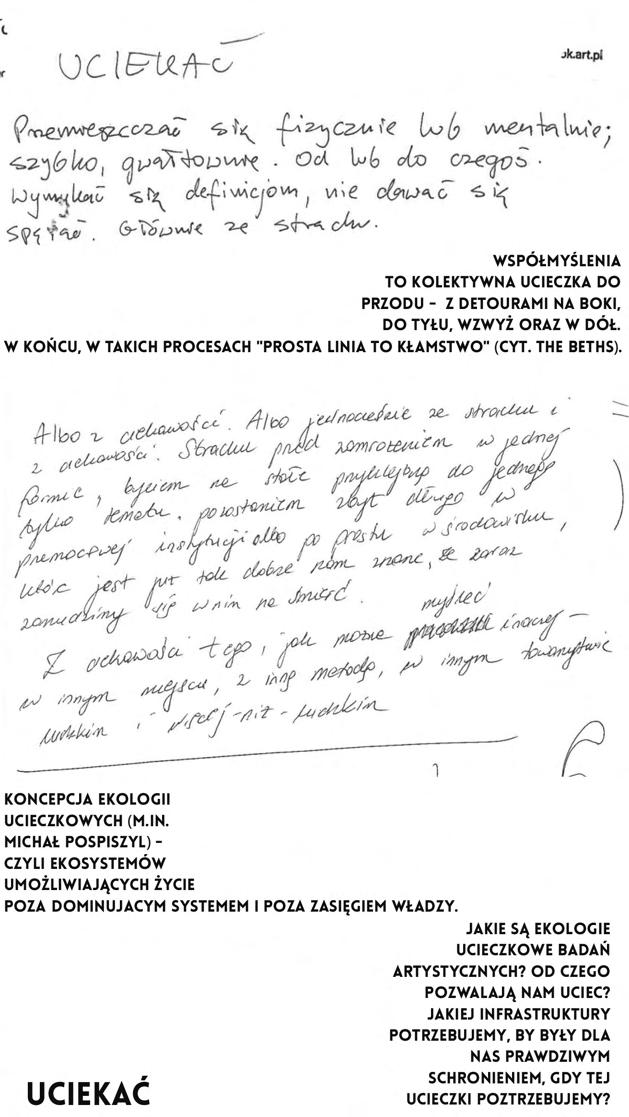 ok.art.pl
UCIEKAĆ
Przemieszczać się fizycznie lub mentalnie;
szybko, gwałtownie. Od lub do czegoś.
Wymykać się definicjom, nie dawać się
spętać. Głównie ze strachu.
WSPÓŁMYŚLENIA
TO KOLEKTYWNA UCIECZKA DO
PRZODU – Z DETOURAMI NA BOKI,
DO TYŁU, WZWYŻ ORAZ W DÓŁ.
W KOŃCU, W TAKICH PROCESACH "PROSTA LINIA TO KŁAMSTWO" (CYT. THE BETHS).
Albo z ciekawości. Albo jednocześnie ze strachu i
z ciekawości. Strachu przed zamrożeniem w jednej
formie, byciem na stałe przyklejoną do jednego
tylko tematu, pozostaniem zbyt długo w
przemocowej instytucji albo po prostu w środowisku,
które jest już tak dobrze nam znane, że zaraz
zanudzimy się w nim na śmierć.
Z ciekawości tego, jak można myśleć inaczej –
w innym miejscu, z inną metodą, w innym towarzystwie
ludzkim i więcej-niż-ludzkim
KONCEPCJA EKOLOGII
UCIECZKOWYCH (M.IN.
MICHAŁ POSPISZYL) –
CZYLI EKOSYSTEMÓW
UMOŻLIWIAJĄCYCH ŻYCIE
POZA DOMINUJACYM SYSTEMEM I POZA ZASIĘGIEM WŁADZY.
JAKIE SĄ EKOLOGIE
UCIECZKOWE BADAŃ
ARTYSTYCZNYCH? OD CZEGO
POZWALAJĄ NAM UCIEC?
JAKIEJ INFRASTRUKTURY
POTRZEBUJEMY, BY BYŁY DLA
NAS PRAWDZIWYM
SCHRONIENIEM, GDY TEJ
UCIECZKI POZTRZEBUJEMY?
UCIEKAĆ